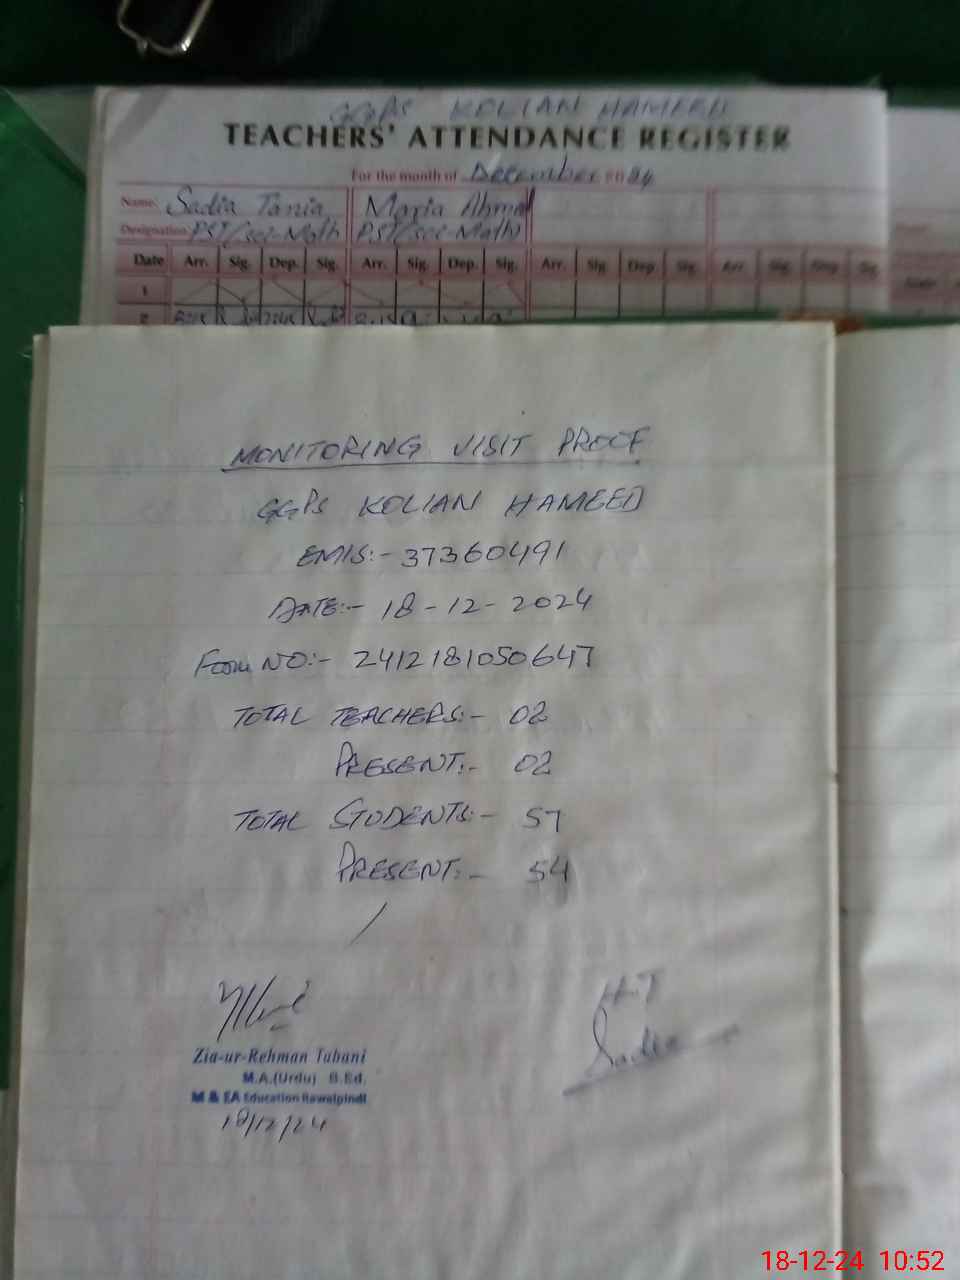 GGPS KOLIAN HAMEED
TEACHERS' ATTENDANCE REGISTER
For the month of December 2024
Name: Sadia Tania Maria Ahmad
Designation: PST/Sci-Math PST(Sci-Math)
Date Arr. Sig. Dep. Sig. Arr. Sig. Dep. Sig. Arr. Sig. Dep. Sig. Arr. Sig. Dep. Sig.
1
2
MONITORING VISIT PROOF
GGPS KOLIAN HAMEED
EMIS:- 37360491
DATE:- 18-12-2024
Form NO:- 2412181050647
TOTAL TEACHERS:- 02
PRESENT:- 02
TOTAL STUDENTS:- 57
PRESENT:- 54
Zia-ur-Rehman Tabani
M.A.(Urdu) B.Ed.
M & EA Education Rawalpindi
18/12/24
H.T
Sadia
18-12-24 10:52